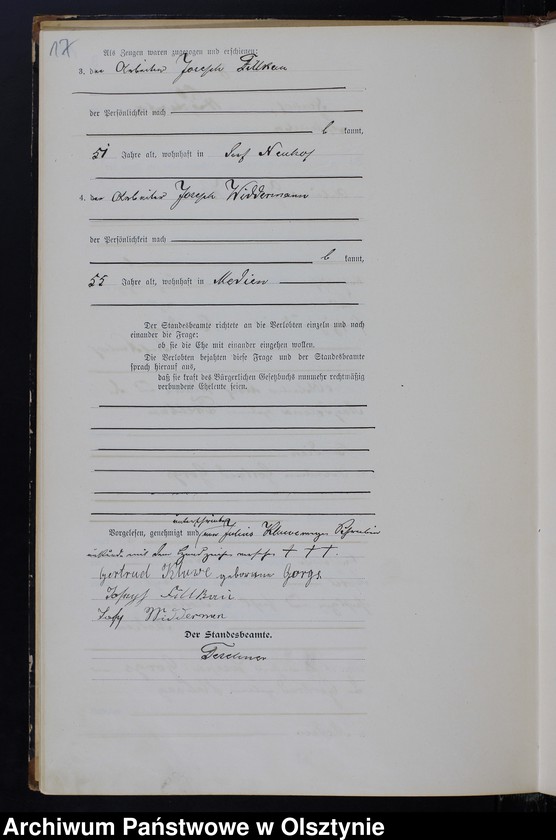 17
Als Zeugen waren zugezogen und erschienen:
3. der Arbeiter Joseph Fittkau
der Persönlichkeit nach
b kannt,
51 Jahre alt, wohnhaft in Dorf Neuhof
4. der Arbeiter Joseph Widdermann
der Persönlichkeit nach
b kannt,
55 Jahre alt, wohnhaft in Medien
Der Standesbeamte richtete an die Verlobten einzeln und nach
einander die Frage:
ob sie die Ehe mit einander eingehen wollen.
Die Verlobten bejahten diese Frage und der Standesbeamte
sprach hierauf aus,
daß sie kraft des Bürgerlichen Gesetzbuchs nunmehr rechtmäßig
verbundene Eheleute seien.
unterschrieben
Vorgelesen, genehmigt und von Julius Kluwe wegen Schreib
mit dem Handzeichen versehen + + +.
Gertrud Kluwe geborene Gorgs
Joseph Fittkau
Josef Widderman
Der Standesbeamte.
Teschner
Archiwum Państwowe w Olsztynie